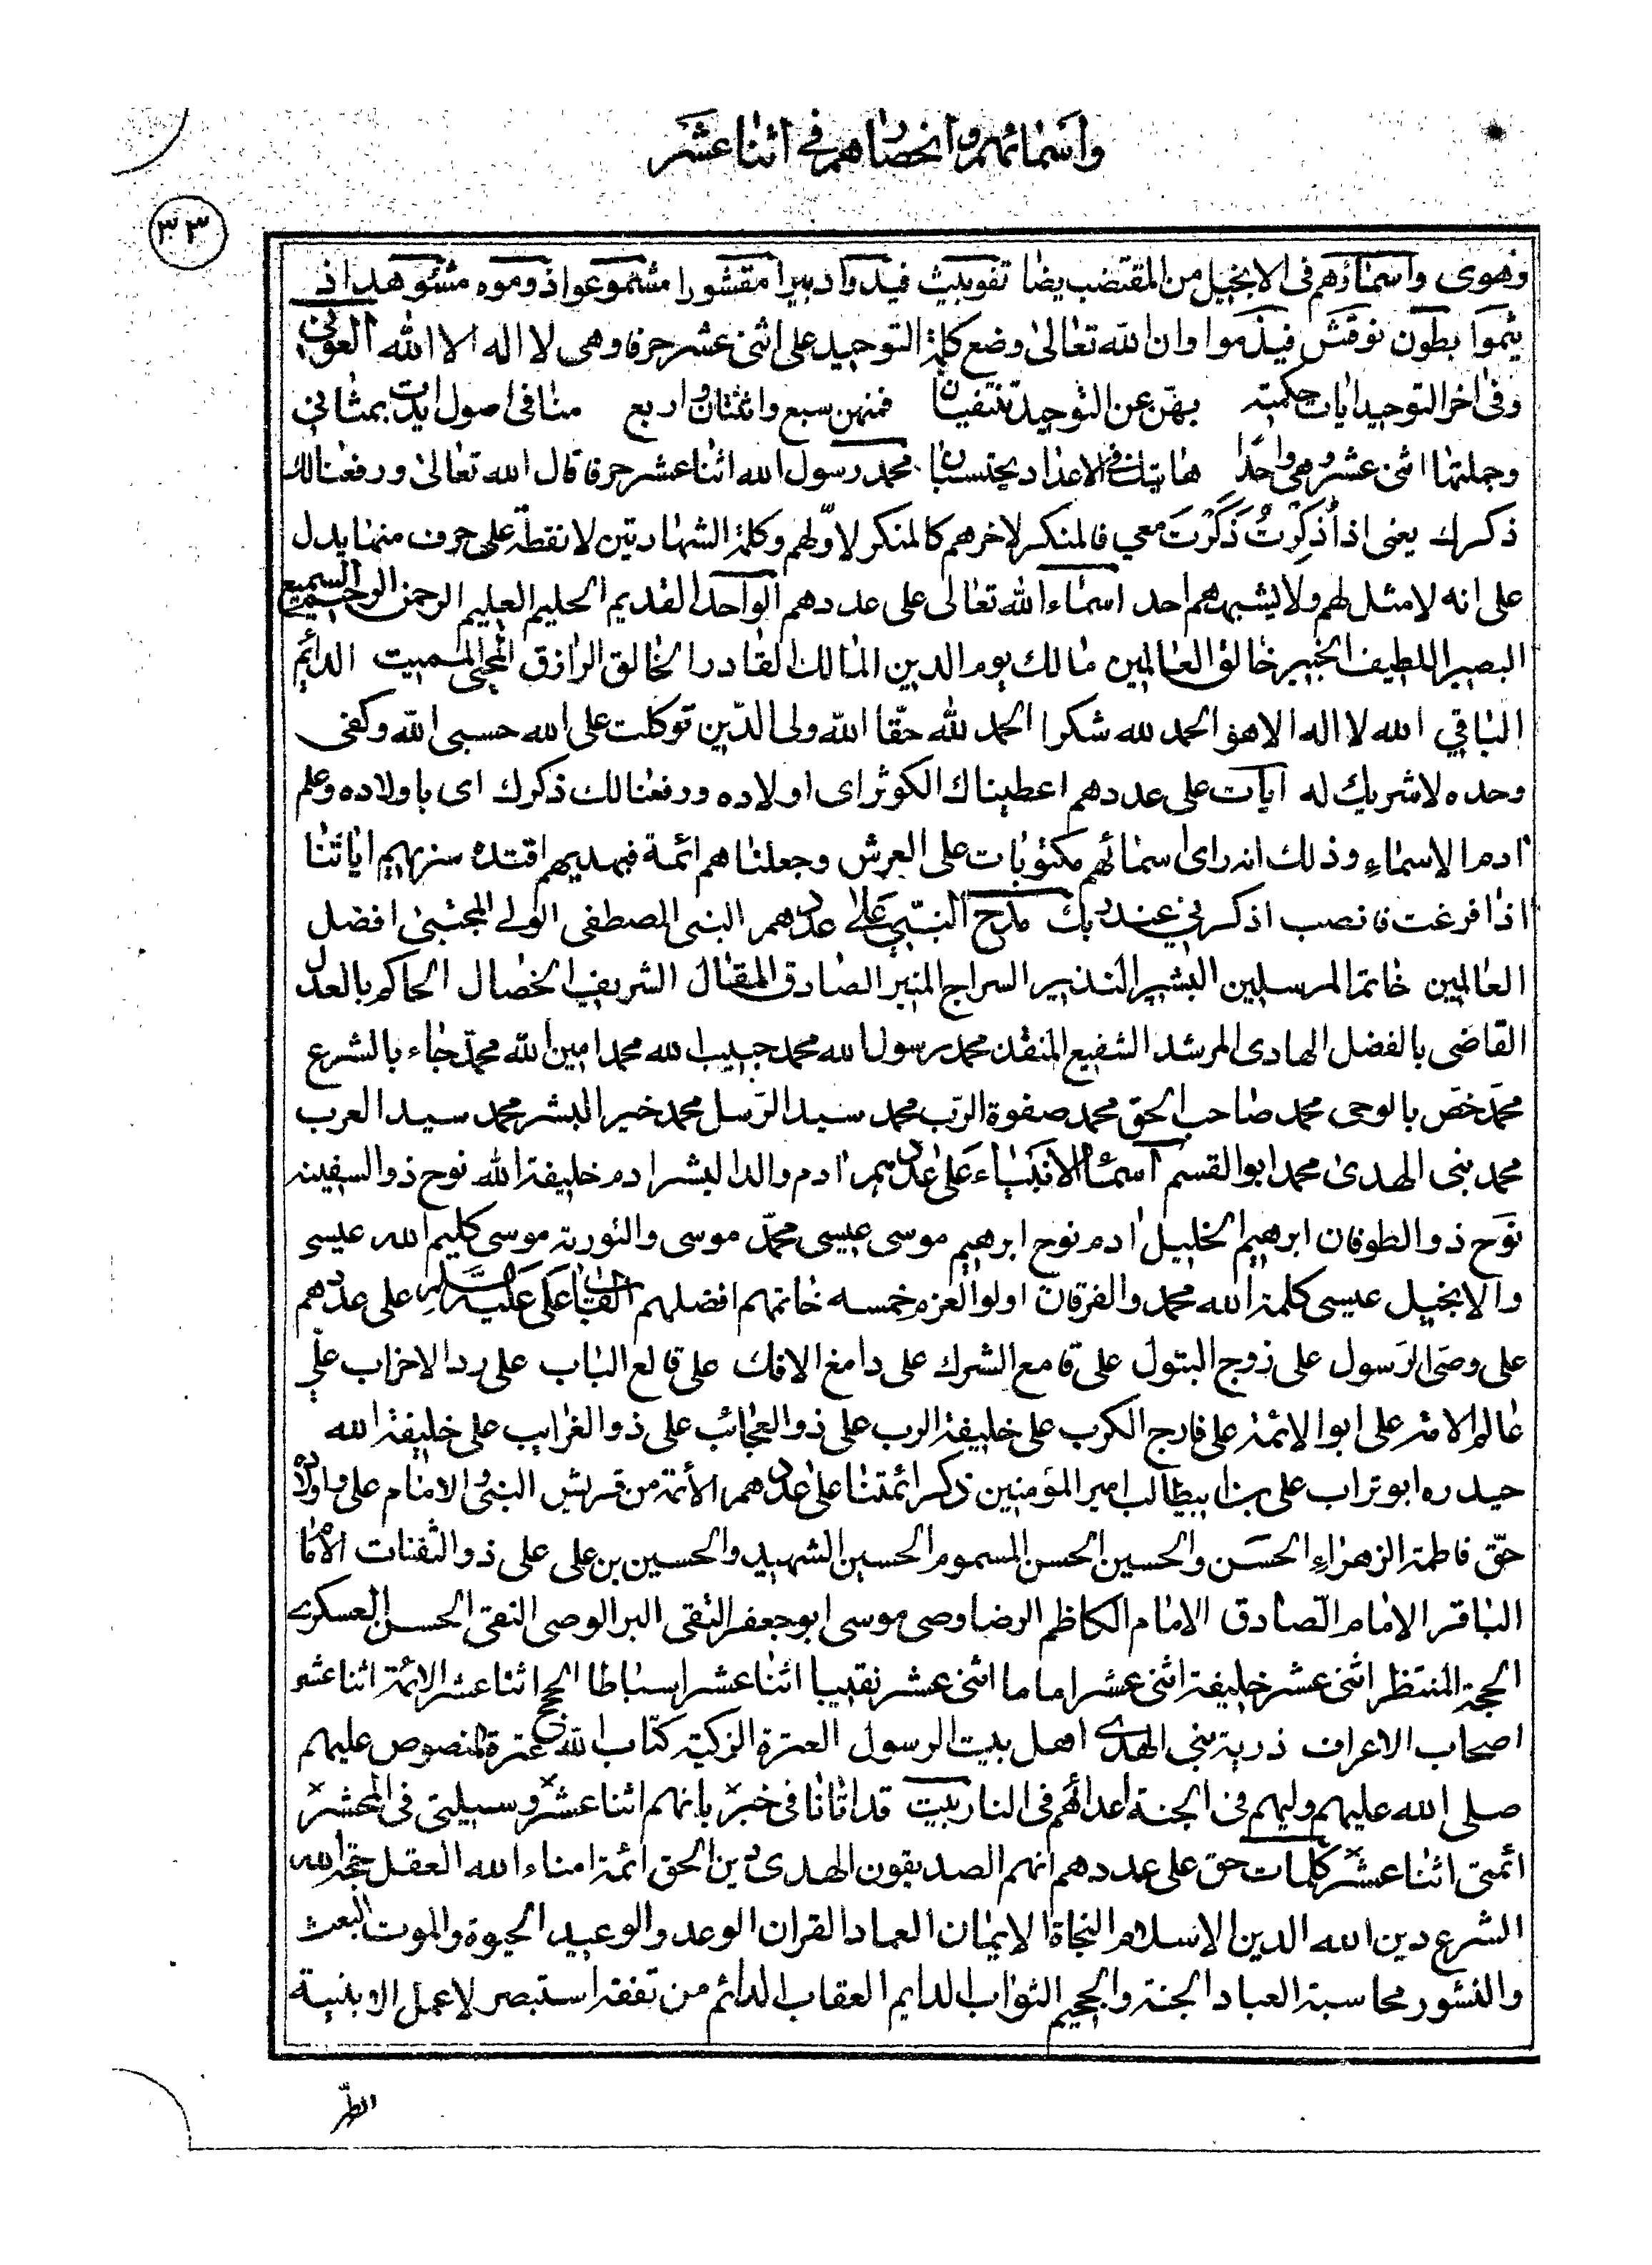 واسمائهم وانحصارهم في اثنا عشر
٣٣
وهوى واسماؤهم فى الانجيل من المقتضب يضا تفوبيث قيذوا دبيرا مقشورا مشموعوا ذوموه مشئو هداذ
يثموا بطون نوقش فيذموا وان الله تعالى وضع كلمة التوحيد على اثنى عشر حرفا وهى لا اله الا الله العونى
وفى اخر التوحيد ايات حكمته بهن عن التوحيد تنتفيان فمنهن سبع واثنتان واربع منا فى اصول ايدت بمثانى
وجملتها اثنى عشر وهى واحد هاتيك فى الاعداد يحتسبان محمد رسول الله اثنا عشر حرفا قال الله تعالى ورفعنا لك
ذكرك يعنى اذا ذُكِرْتُ ذَكَرْتَ معي فالمنكر لاخرهم كالمنكر لاوّلهم وكلمة الشهادتين لا نقطة على حرف منها يدل
على انه لا مثل لهم ولا يشبههم احد اسماء الله تعالى على عددهم الواحد القديم الحليم العليم الرحمن الرحيم السميع
البصير اللطيف الخبير خالق العالمين مالك يوم الدين المالك القادر الخالق الرازق المحيى المميت الدائم
الباقي الله لا اله الا هو الحمد لله شكرا الحمد لله حقّا الله ولى الدّين توكلت على الله حسبى الله وكفى
وحده لا شريك له ايات على عددهم اعطيناك الكوثر اى اولاده ورفعنا لك ذكرك اى باولاده وعلم
ادم الاسماء وذلك انه راى اسمائهم مكتوبات على العرش وجعلناهم ائمة فبهديهم اقتده سنريهم اياتنا
اذا فرغت فانصب اذكرنى عند ربك مدح النبي على عددهم النبى المصطفى الولى المجتبى افضل
العالمين خاتم المرسلين البشير النذير السراج المنير الصادق المقال الشريف الخصال الحاكم بالعدل
القاضى بالفضل الهادى المرشد الشفيع المنقذ محمد رسول الله محمد حبيب الله محمد امين الله محمّد جاء بالشرع
محمّد خصّ بالوحى محمد صاحب الحق محمد صفوة الرب محمد سيد الرّسل محمد خير البشر محمد سيد العرب
محمد نبى الهدى محمد ابو القسم اسماء الانبياء على عددهم ادم والد البشر ادم خليفة الله نوح ذو السفينه
نوح ذو الطوفان ابرهيم الخليل ادم نوح ابرهيم موسى عيسى محمّد موسى والتورية موسى كليم الله عيسى
والانجيل عيسى كلمة الله محمد والفرقان اولوا العزم خمسه خاتمهم افضلهم القاب على عليه السلام على عددهم
على وصى الرسول على زوج البتول على قامع الشرك على دامغ الافك على قالع الباب على رد الاحزاب علي
عالم الامة على ابو الائمة على فارج الكرب على خليفة الرب على ذو العجائب على ذو الغرايب على خليفة الله
حيدره ابو تراب على بن ابيطالب امير المؤمنين ذكر ائمتنا على عددهم الأئمة من قريش النبى والامام على واولاده
حقّ فاطمة الزهراء الحسن والحسين الحسن المسموم الحسين الشهيد والحسين بن على على ذو الثفنات الامام
الباقر الامام الصّادق الامام الكاظم الرضا وصى موسى ابو جعفر التقى البر الوصى النقى الحسن العسكرى
الحجة المنتظر اثنى عشر خليفة اثنى عشر اماما اثنى عشر نقيبا اثنا عشر اسباطا الحجج اثنا عشر الائمة اثنا عشر
اصحاب الاعراف ذرية نبى الهدى اهل بيت الرسول العترة الزكية كتاب الله عترة المنصوص عليهم
صلى الله عليهم وليهم فى الجنة اعدائهم فى النار بيت قد اتانا فى خبر بانهم اثنا عشر وسيلتى فى المحشر
ائمتى اثنا عشر كلمات حق على عددهم انهم الصديقون الهدى دين الحق ائمة امناء الله العقل حجة الله
الشرع دين الله الدين الاسلام النجاة الايمان العماد القران الوعد والوعيد الحيوة والموت البعث
والنشور محاسبة العباد الجنة والجحيم الثواب الدايم العقاب الدائم من تفقه استبصر لا عمل الا بنية
الطّهر